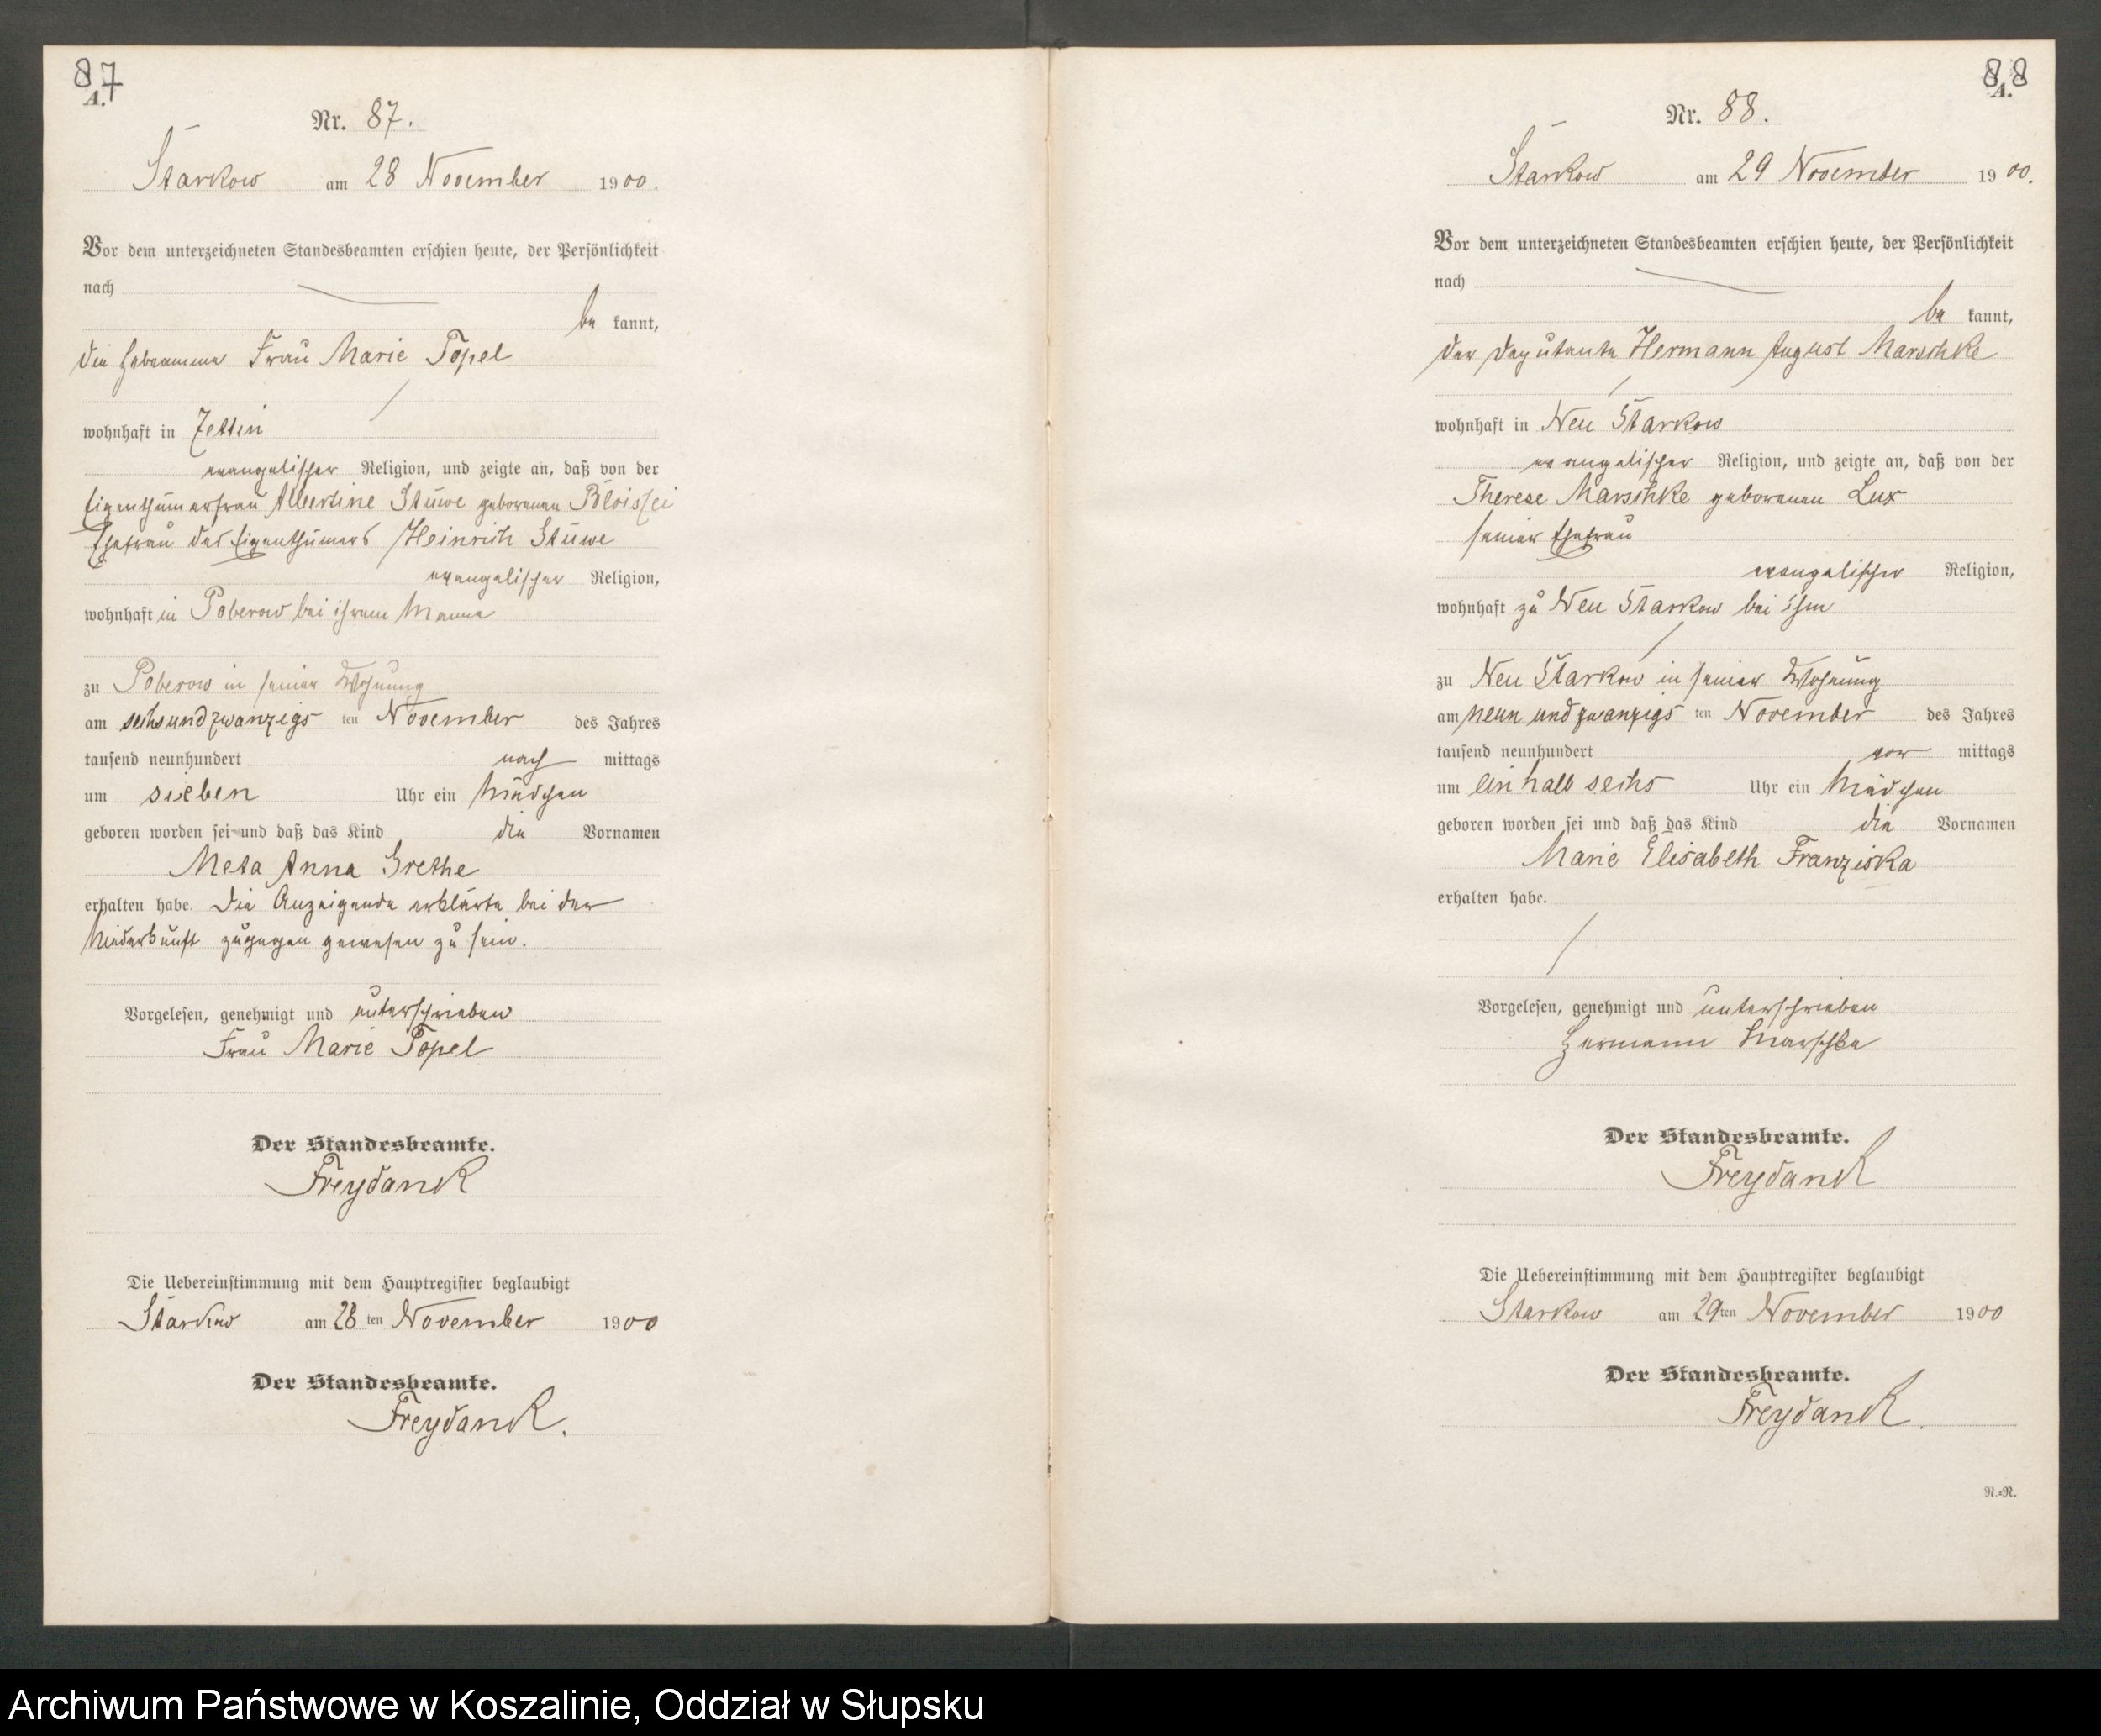 87
A.
Nr. 87.
Starkow am 28 November 1900.
Vor dem unterzeichneten Standesbeamten erschien heute, der Persönlichkeit
nach
be kannt,
die Hebeamme Frau Marie Topel
wohnhaft in Zettin
evangelischer Religion, und zeigte an, daß von der
Eigenthümerfrau Albertine Stüwe geborenen
Ehefrau des Eigenthümers Heinrich Stüwe
evangelischer Religion,
wohnhaft in Poberow bei ihrem Manne
zu Poberow in seiner Wohnung
am sechsundzwanzigs ten November des Jahres
tausend neunhundert nach mittags
um sieben Uhr ein Mädchen
geboren worden sei und daß das Kind die Vornamen
Meta Anna Grethe
erhalten habe. Die Anzeigende erklärte bei der
Niederkunft zugegen gewesen zu sein.
Vorgelesen, genehmigt und unterschrieben
Frau Marie Topel
Der Standesbeamte.
Freydank
Die Uebereinstimmung mit dem Hauptregister beglaubigt
Starkow am 28 ten November 1900
Der Standesbeamte.
Freydank.
88
A.
Nr. 88.
Starkow am 29 November 1900.
Vor dem unterzeichneten Standesbeamten erschien heute, der Persönlichkeit
nach
be kannt,
der Deputante Hermann August Marschke
wohnhaft in Neu Starkow
evangelischer Religion, und zeigte an, daß von der
Therese Marschke geborenen Lux
seiner Ehefrau
evangelischer Religion,
wohnhaft zu Neu Starkow bei ihm
zu Neu Starkow in seiner Wohnung
am neun und zwanzigs ten November des Jahres
tausend neunhundert vor mittags
um ein halb sechs Uhr ein Mädchen
geboren worden sei und daß das Kind die Vornamen
Marie Elisabeth Franziska
erhalten habe.
Vorgelesen, genehmigt und unterschrieben
Hermann Marschke
Der Standesbeamte.
Freydank
Die Uebereinstimmung mit dem Hauptregister beglaubigt
Starkow am 29 ten November 1900
Der Standesbeamte.
Freydank.
N.-R.
Archiwum Państwowe w Koszalinie, Oddział w Słupsku